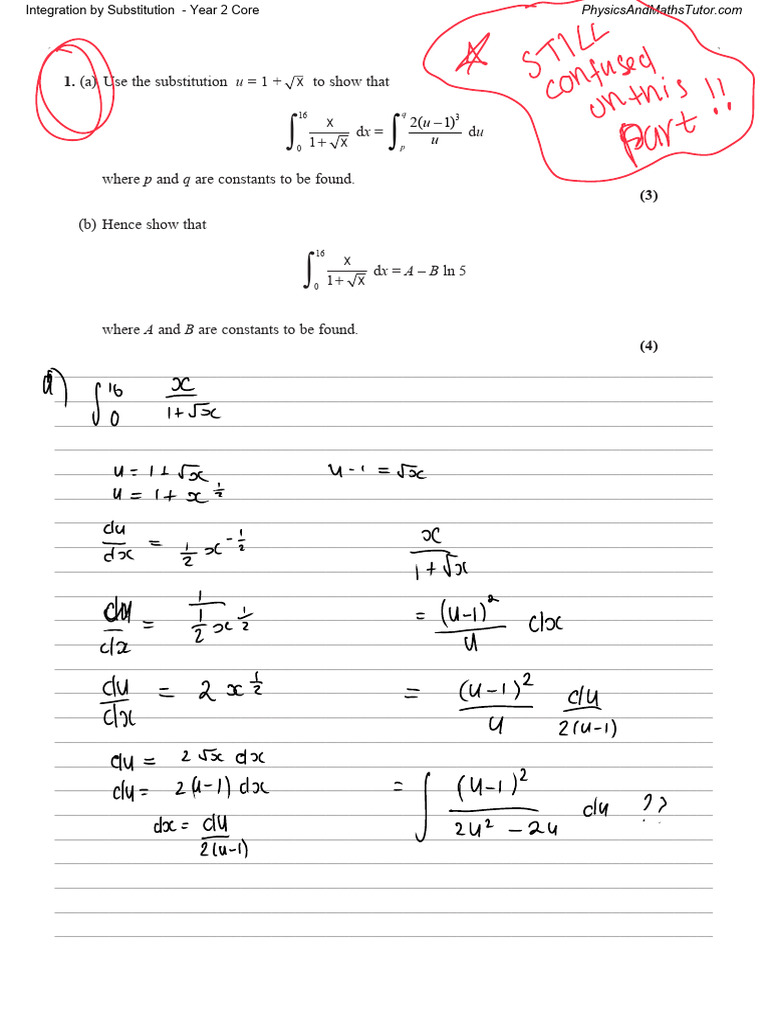 Integration by Substitution - Year 2 Core
PhysicsAndMathsTutor.com
STILL
confused
on this
part!!
1. (a) Use the substitution u = 1 + √x to show that
∫₀¹⁶ x/(1+√x) dx = ∫ₚ^q 2(u−1)³/u du
where p and q are constants to be found.
(3)
(b) Hence show that
∫₀¹⁶ x/(1+√x) dx = A – B ln 5
where A and B are constants to be found.
(4)
a) ∫₀¹⁶ x/(1+√x)
u = 1+√x
u = 1 + x^(1/2)
du/dx = 1/2 x^(-1/2)
du/dx = 1/(1/2 x^(1/2))
du/dx = 2 x^(1/2)
du = 2√x dx
du = 2(u-1) dx
dx = du/2(u-1)
u-1 = √x
x/(1+√x)
= (u-1)²/u dx
= (u-1)²/u du/2(u-1)
= ∫ (u-1)²/(2u² - 2u) du ??